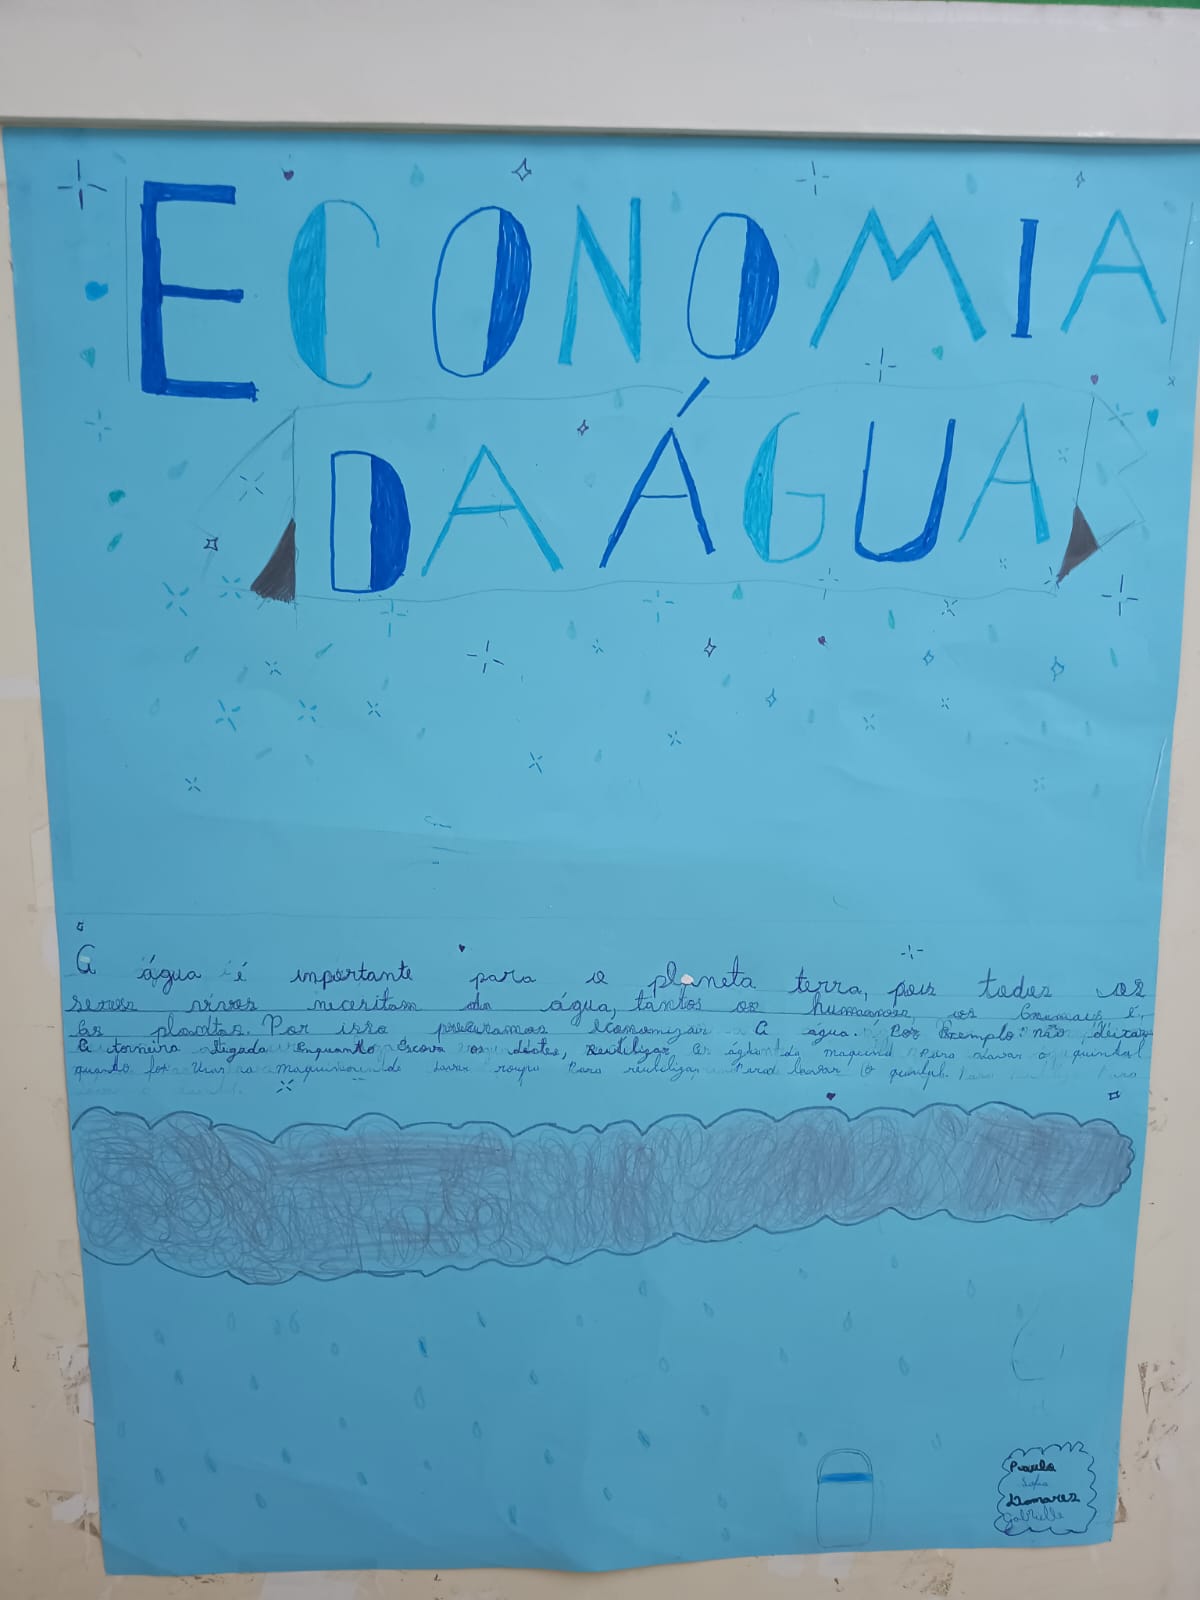 ECONOMIA
DA ÁGUA
A água é importante para o planeta terra, pois todos os
seres vivos necesitam da água, tantos os humanos, os animais e,
as plantas. Por isso precisamos economizar a água. Por exemplo: não deixar
a torneira ligada enquanto escova os dentes, reutilizar as água da maquina para lavar o quintal
quando for usar a maquina de lavar roupa para reutilizar para lavar o quintal.
Paula
Sofia
Gabrielle